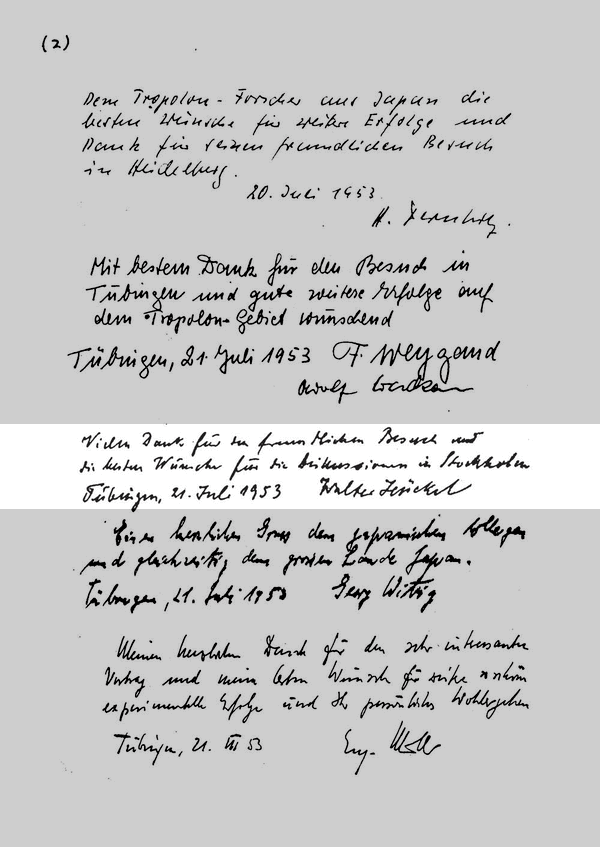 (2)
Dem Tropolon-Forscher aus Japan die
besten Wünsche für weitere Erfolge und
Dank für seinen freundlichen Besuch
in Heidelberg.
20. Juli 1953.
H.
Mit bestem Dank für den Besuch in
Tübingen und gute weitere Erfolge auf
dem Tropolon-Gebiet wünschend
Tübingen, 21. Juli 1953 F. Weygand
Adolf
Vielen Dank für den freundlichen Besuch und
die besten Wünsche für die Diskussionen in Stockholm
Tübingen, 21. Juli 1953 Walter Hückel
Einen herzlichen Gruss dem japanischen Kollegen
und gleichzeitig dem grossen Lande Japan.
Tübingen, 21. Juli 1953 Georg Wittig
Meinen herzlichen Dank für den sehr interessanten
Vortrag und meine besten Wünsche für
experimentelle Erfolge und Ihr persönliches Wohlergehen
Tübingen, 21. VII 53 Eug.